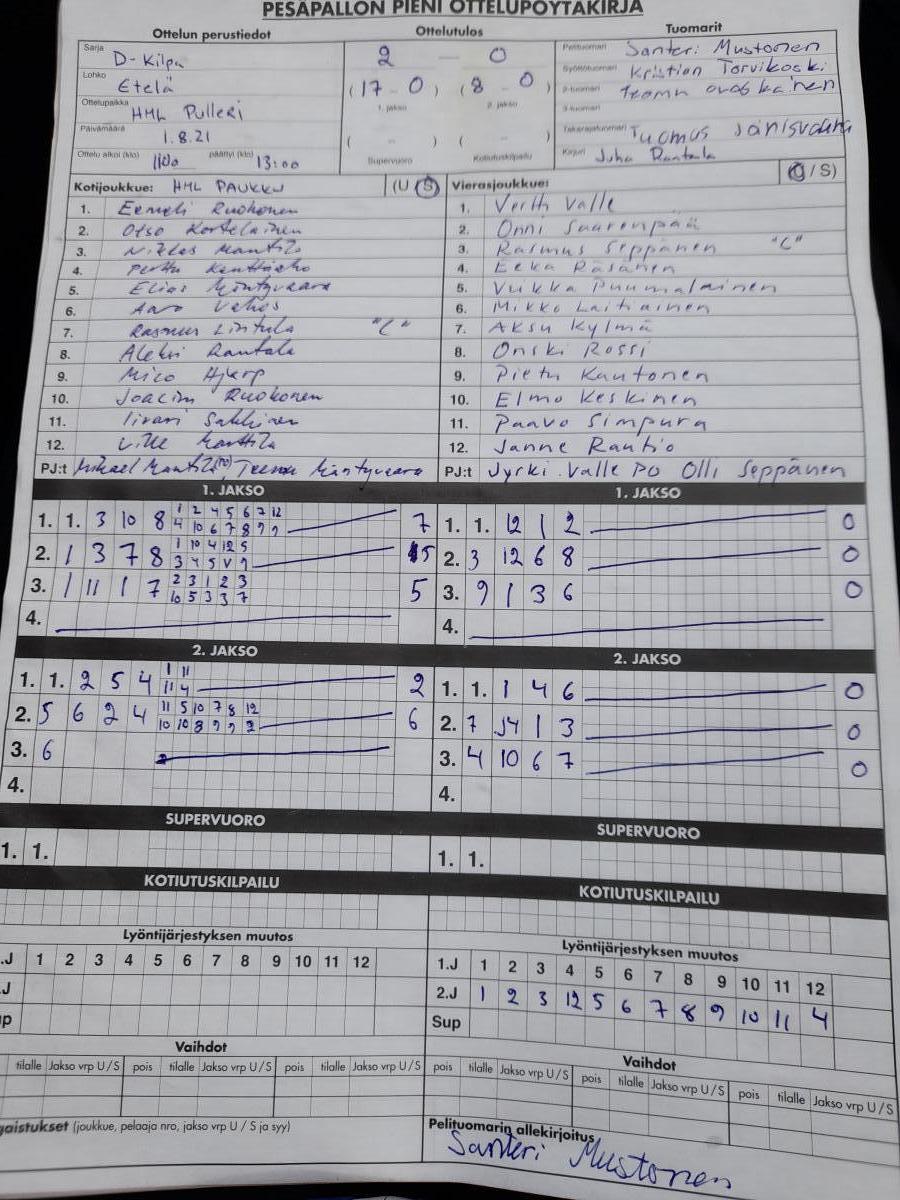 PESÄPALLON PIENI OTTELUPÖYTÄKIRJA
Ottelun perustiedot Ottelutulos Tuomarit
Sarja D-Kilpa 2 — 0 Pelituomari Santeri Mustonen
Lohko Etelä (17 - 0) (8 - 0) Syöttötuomari Kristian Torvikoski
1. jakso 2. jakso 2-tuomari
Ottelupaikka HML Pulleri 3-tuomari
Päivämäärä 1.8.21 ( - ) ( - ) Takarajatuomari Tuomus Jänisvaara
Ottelu alkoi (klo) 1100 päättyi (klo) 13:00 Supervuoro Kotiutuskilpailu Kirjuri Juha Rantala
Kotijoukkue: HML PAUKKU (U S) Vierasjoukkue: (U / S)
1. Eemeli Ruohonen 1. Vertti Valle
2. Otso Kortelainen 2. Onni Saarenpää
3. Niklas Mantila 3. Rasmus Seppänen "C"
4. Perttu 4. Eeka Räsänen
5. Elias Mäntyvaara 5. Veikka Puumalainen
6. Aaro 6. Mikko Laitiainen
7. Rasmus Lintula "C" 7. Aksu Kylmä
8. Aleksi Rantala 8. Onski Rossi
9. Mico Hjerp 9. Pietu Kautonen
10. Joacim Ruokonen 10. Elmo Keskinen
11. Iivari Sahlinen 11. Paavo Simpura
12. Ville Marttila 12. Janne Rautio
PJ:t Mikael Mantila Teemu Mäntyvaara PJ:t Jyrki Valle PO Olli Seppänen
1. JAKSO 1. JAKSO
1 2 4 5 6 7 12
1. 1. 3 10 8 4 10 6 7 8 9 9 7 1. 1. 12 1 2 0
1 10 4 12 5
2. 1 3 7 8 3 4 5 V 9 5 2. 3 12 6 8 0
2 3 1 2 3
3. 1 11 1 7 10 5 3 3 7 5 3. 9 1 3 6 0
4. 4.
2. JAKSO 2. JAKSO
1 11
1. 1. 2 5 4 11 4 2 1. 1. 1 4 6 0
11 5 10 7 8 12
2. 5 6 2 4 10 10 8 9 9 2 6 2. 7 1 3 0
3. 6 3. 4 10 6 7 0
4. 4.
SUPERVUORO SUPERVUORO
1. 1. 1. 1.
KOTIUTUSKILPAILU KOTIUTUSKILPAILU
Lyöntijärjestyksen muutos Lyöntijärjestyksen muutos
.J 1 2 3 4 5 6 7 8 9 10 11 12 1.J 1 2 3 4 5 6 7 8 9 10 11 12
.J 2.J 1 2 3 12 5 6 7 8 9 10 11 4
p Sup
Vaihdot Vaihdot
tilalle Jakso vrp U/S pois tilalle Jakso vrp U/S pois tilalle Jakso vrp U/S pois tilalle Jakso vrp U/S pois tilalle Jakso vrp U/S pois tilalle Jakso vrp U/S
gaistukset (joukkue, pelaaja nro, jakso vrp U / S ja syy) Pelituomarin allekirjoitus
Santeri Mustonen